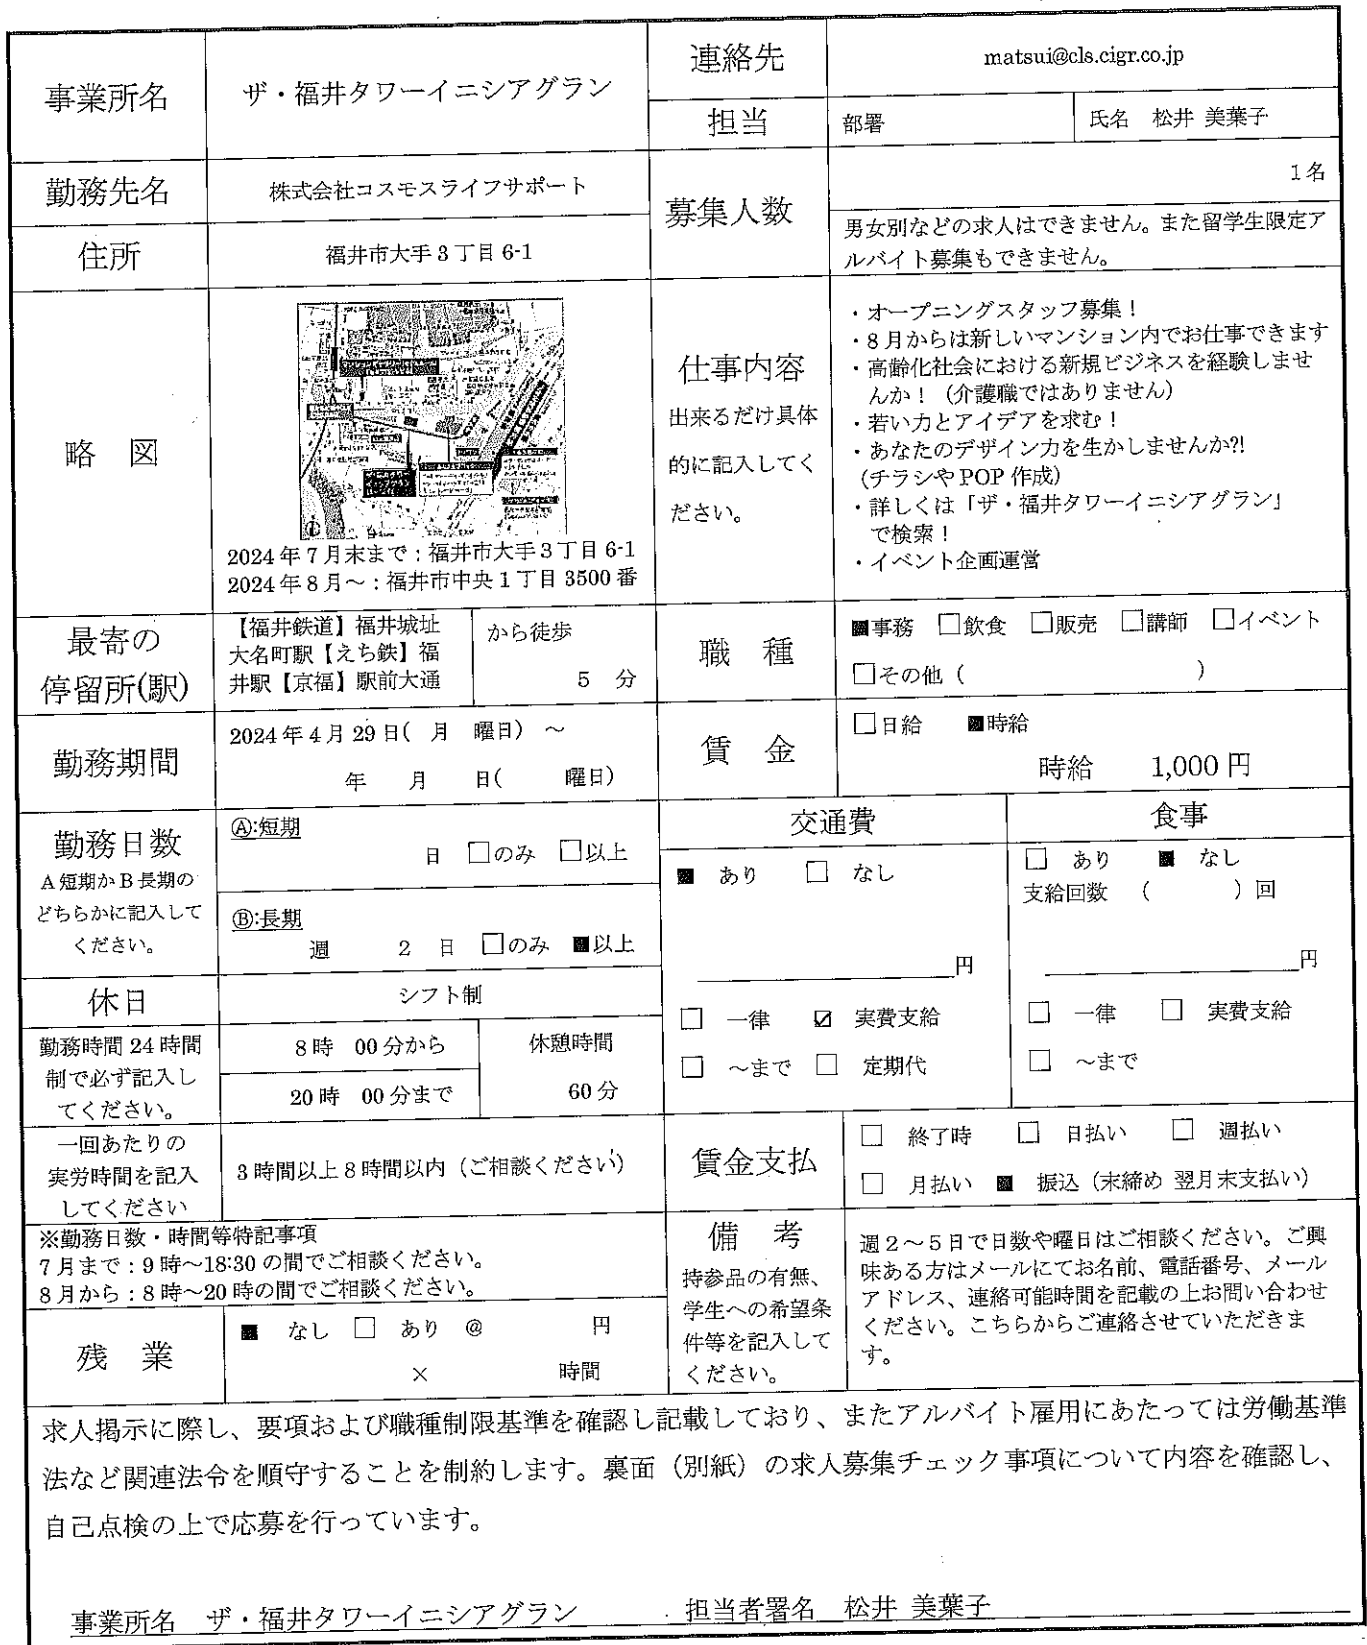 事業所名
ザ・福井タワーイニシアグラン
連絡先
matsui@cls.cigr.co.jp
担当
部署
氏名 松井 美葉子
勤務先名
株式会社コスモスライフサポート
住所
福井市大手3丁目6-1
募集人数
1名
男女別などの求人はできません。また留学生限定ア
ルバイト募集もできません。
略 図
2024年7月末まで：福井市大手3丁目6-1
2024年8月～：福井市中央1丁目3500番
仕事内容
出来るだけ具体
的に記入してく
ださい。
・オープニングスタッフ募集！
・8月からは新しいマンション内でお仕事できます
・高齢化社会における新規ビジネスを経験しませ
んか！（介護職ではありません）
・若い力とアイデアを求む！
・あなたのデザイン力を生かしませんか?!
（チラシやPOP作成）
・詳しくは「ザ・福井タワーイニシアグラン」
で検索！
・イベント企画運営
最寄の
停留所(駅)
【福井鉄道】福井城址
大名町駅【えち鉄】福
井駅【京福】駅前大通
から徒歩
5 分
職 種
■事務 □飲食 □販売 □講師 □イベント
□その他（ ）
勤務期間
2024年4月29日( 月 曜日) ～
年 月 日( 曜日)
賃 金
□日給 ■時給
時給 1,000円
勤務日数
A短期かB長期の
どちらかに記入して
ください。
Ⓐ:短期
日 □のみ □以上
Ⓑ:長期
週 2 日 □のみ ■以上
交通費
■ あり □ なし
円
□ 一律 ☑ 実費支給
□ ～まで □ 定期代
食事
□ あり ■ なし
支給回数 （ ）回
円
□ 一律 □ 実費支給
□ ～まで
休日
シフト制
勤務時間24時間
制で必ず記入し
てください。
8時 00分から
20時 00分まで
休憩時間
60分
一回あたりの
実労時間を記入
してください
3時間以上8時間以内（ご相談ください）
賃金支払
□ 終了時 □ 日払い □ 週払い
□ 月払い ■ 振込（末締め 翌月末支払い）
※勤務日数・時間等特記事項
7月まで：9時～18:30の間でご相談ください。
8月から：8時～20時の間でご相談ください。
残 業
■ なし □ あり @ 円
× 時間
備 考
持参品の有無、
学生への希望条
件等を記入して
ください。
週2～5日で日数や曜日はご相談ください。ご興
味ある方はメールにてお名前、電話番号、メール
アドレス、連絡可能時間を記載の上お問い合わせ
ください。こちらからご連絡させていただきま
す。
求人掲示に際し、要項および職種制限基準を確認し記載しており、またアルバイト雇用にあたっては労働基準
法など関連法令を順守することを制約します。裏面（別紙）の求人募集チェック事項について内容を確認し、
自己点検の上で応募を行っています。
事業所名 ザ・福井タワーイニシアグラン 担当者署名 松井 美葉子